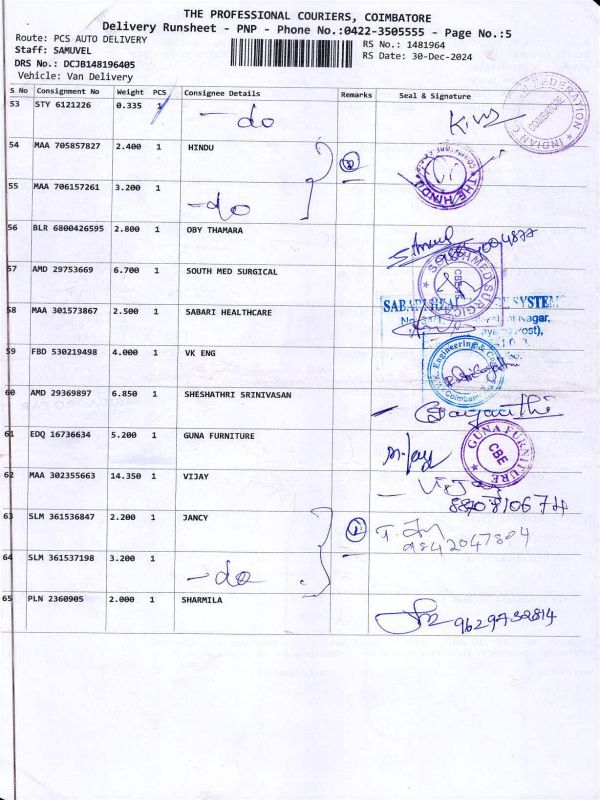 THE PROFESSIONAL COURIERS, COIMBATORE
Delivery Runsheet - PNP - Phone No.:0422-3505555 - Page No.:5
Route: PCS AUTO DELIVERY
Staff: SAMUVEL
DRS No.: DCJB148196405
Vehicle: Van Delivery
RS No.: 1481964
RS Date: 30-Dec-2024
S No Consignment No Weight PCS Consignee Details Remarks Seal & Signature
53 STY 6121226 0.335 1 -do
INDIAN
COIMBATORE
FEDERATION
54 MAA 705857827 2.400 1 HINDU
THE HINDU
55 MAA 706157261 3.200 1 -do
56 BLR 6800426595 2.800 1 OBY THAMARA
57 AMD 29753669 6.700 1 SOUTH MED SURGICAL
58 MAA 301573867 2.500 1 SABARI HEALTHCARE
SABARI HEALTHCARE SYSTEMS
59 FBD 530219498 4.000 1 VK ENG
V.K. Engineering & Co
Coimbatore
60 AMD 29369897 6.850 1 SHESHATHRI SRINIVASAN
61 EDQ 16736634 5.200 1 GUNA FURNITURE
GUNA FURNITURE
CBE
62 MAA 302355663 14.350 1 VIJAY
63 SLM 361536847 2.200 1 JANCY
9842047804
64 SLM 361537198 3.200 1 -do
65 PLN 2360905 2.000 1 SHARMILA